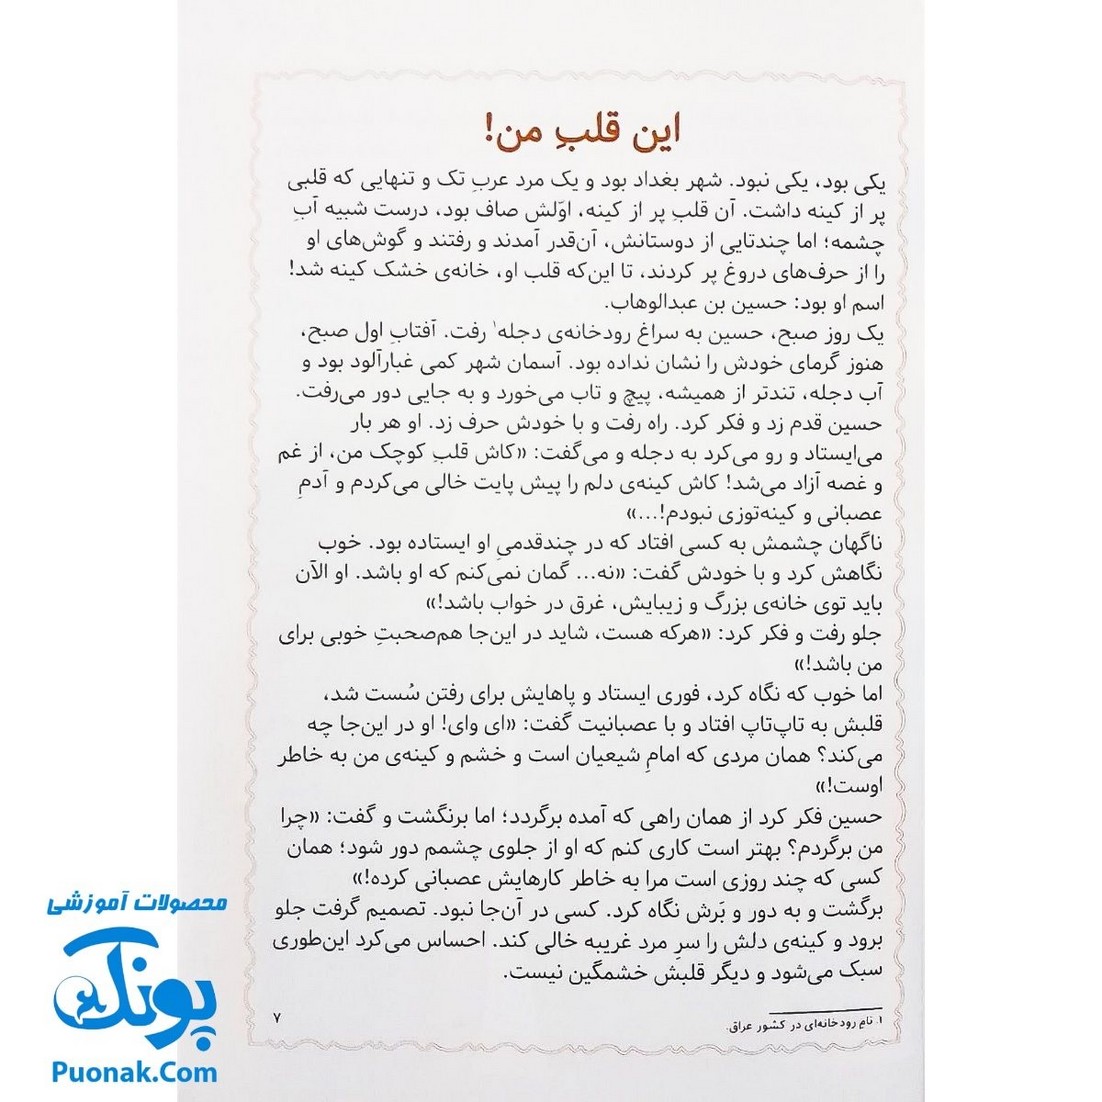 این قلبِ من!
یکی بود، یکی نبود. شهر بغداد بود و یک مرد عربِ تک و تنهایی که قلبی
پر از کینه داشت. آن قلبِ پر از کینه، اوّلش صاف بود، درست شبیه آبِ
چشمه؛ اما چندتایی از دوستانش، آن‌قدر آمدند و رفتند و گوش‌های او
را از حرف‌های دروغ پر کردند، تا این‌که قلب او، خانه‌ی خشک کینه شد!
اسم او بود: حسین بن عبدالوهاب.
یک روز صبح، حسین به سراغ رودخانه‌ی دجله۱ رفت. آفتابِ اول صبح،
هنوز گرمای خودش را نشان نداده بود. آسمان شهر کمی غبارآلود بود و
آب دجله، تندتر از همیشه، پیچ و تاب می‌خورد و به جایی دور می‌رفت.
حسین قدم زد و فکر کرد. راه رفت و با خودش حرف زد. او هر بار
می‌ایستاد و رو می‌کرد به دجله و می‌گفت: «کاش قلبِ کوچک من، از غم
و غصه آزاد می‌شد! کاش کینه‌ی دلم را پیش پایت خالی می‌کردم و آدمِ
عصبانی و کینه‌توزی نبودم!...»
ناگهان چشمش به کسی افتاد که در چندقدمیِ او ایستاده بود. خوب
نگاهش کرد و با خودش گفت: «نه... گمان نمی‌کنم که او باشد. او الآن
باید توی خانه‌ی بزرگ و زیبایش، غرق در خواب باشد!»
جلو رفت و فکر کرد: «هرکه هست، شاید در این‌جا هم‌صحبتِ خوبی برای
من باشد!»
اما خوب که نگاه کرد، فوری ایستاد و پاهایش برای رفتن سُست شد،
قلبش به تاپ‌تاپ افتاد و با عصبانیت گفت: «ای وای! او در این‌جا چه
می‌کند؟ همان مردی که امامِ شیعیان است و خشم و کینه‌ی من به خاطر
اوست!»
حسین فکر کرد از همان راهی که آمده برگردد؛ اما برنگشت و گفت: «چرا
من برگردم؟ بهتر است کاری کنم که او از جلوی چشمم دور شود؛ همان
کسی که چند روزی است مرا به خاطر کارهایش عصبانی کرده!»
برگشت و به دور و بَرش نگاه کرد. کسی در آن‌جا نبود. تصمیم گرفت جلو
برود و کینه‌ی دلش را سرِ مرد غریبه خالی کند. احساس می‌کرد این‌طوری
سبک می‌شود و دیگر قلبش خشمگین نیست.
۱. نامِ رودخانه‌ای در کشور عراق.
۷
محصولات آموزشی
پونک
Puonak.Com